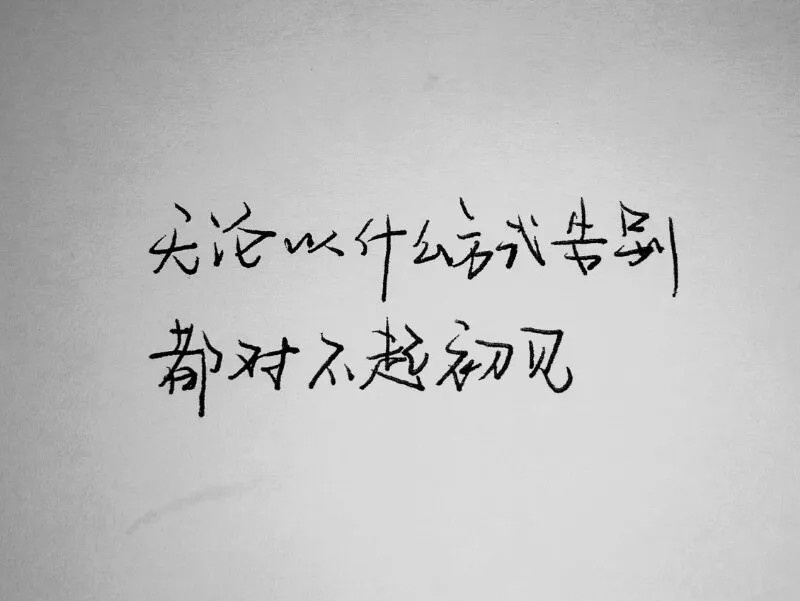 无论以什么方式告别
都对不起初见